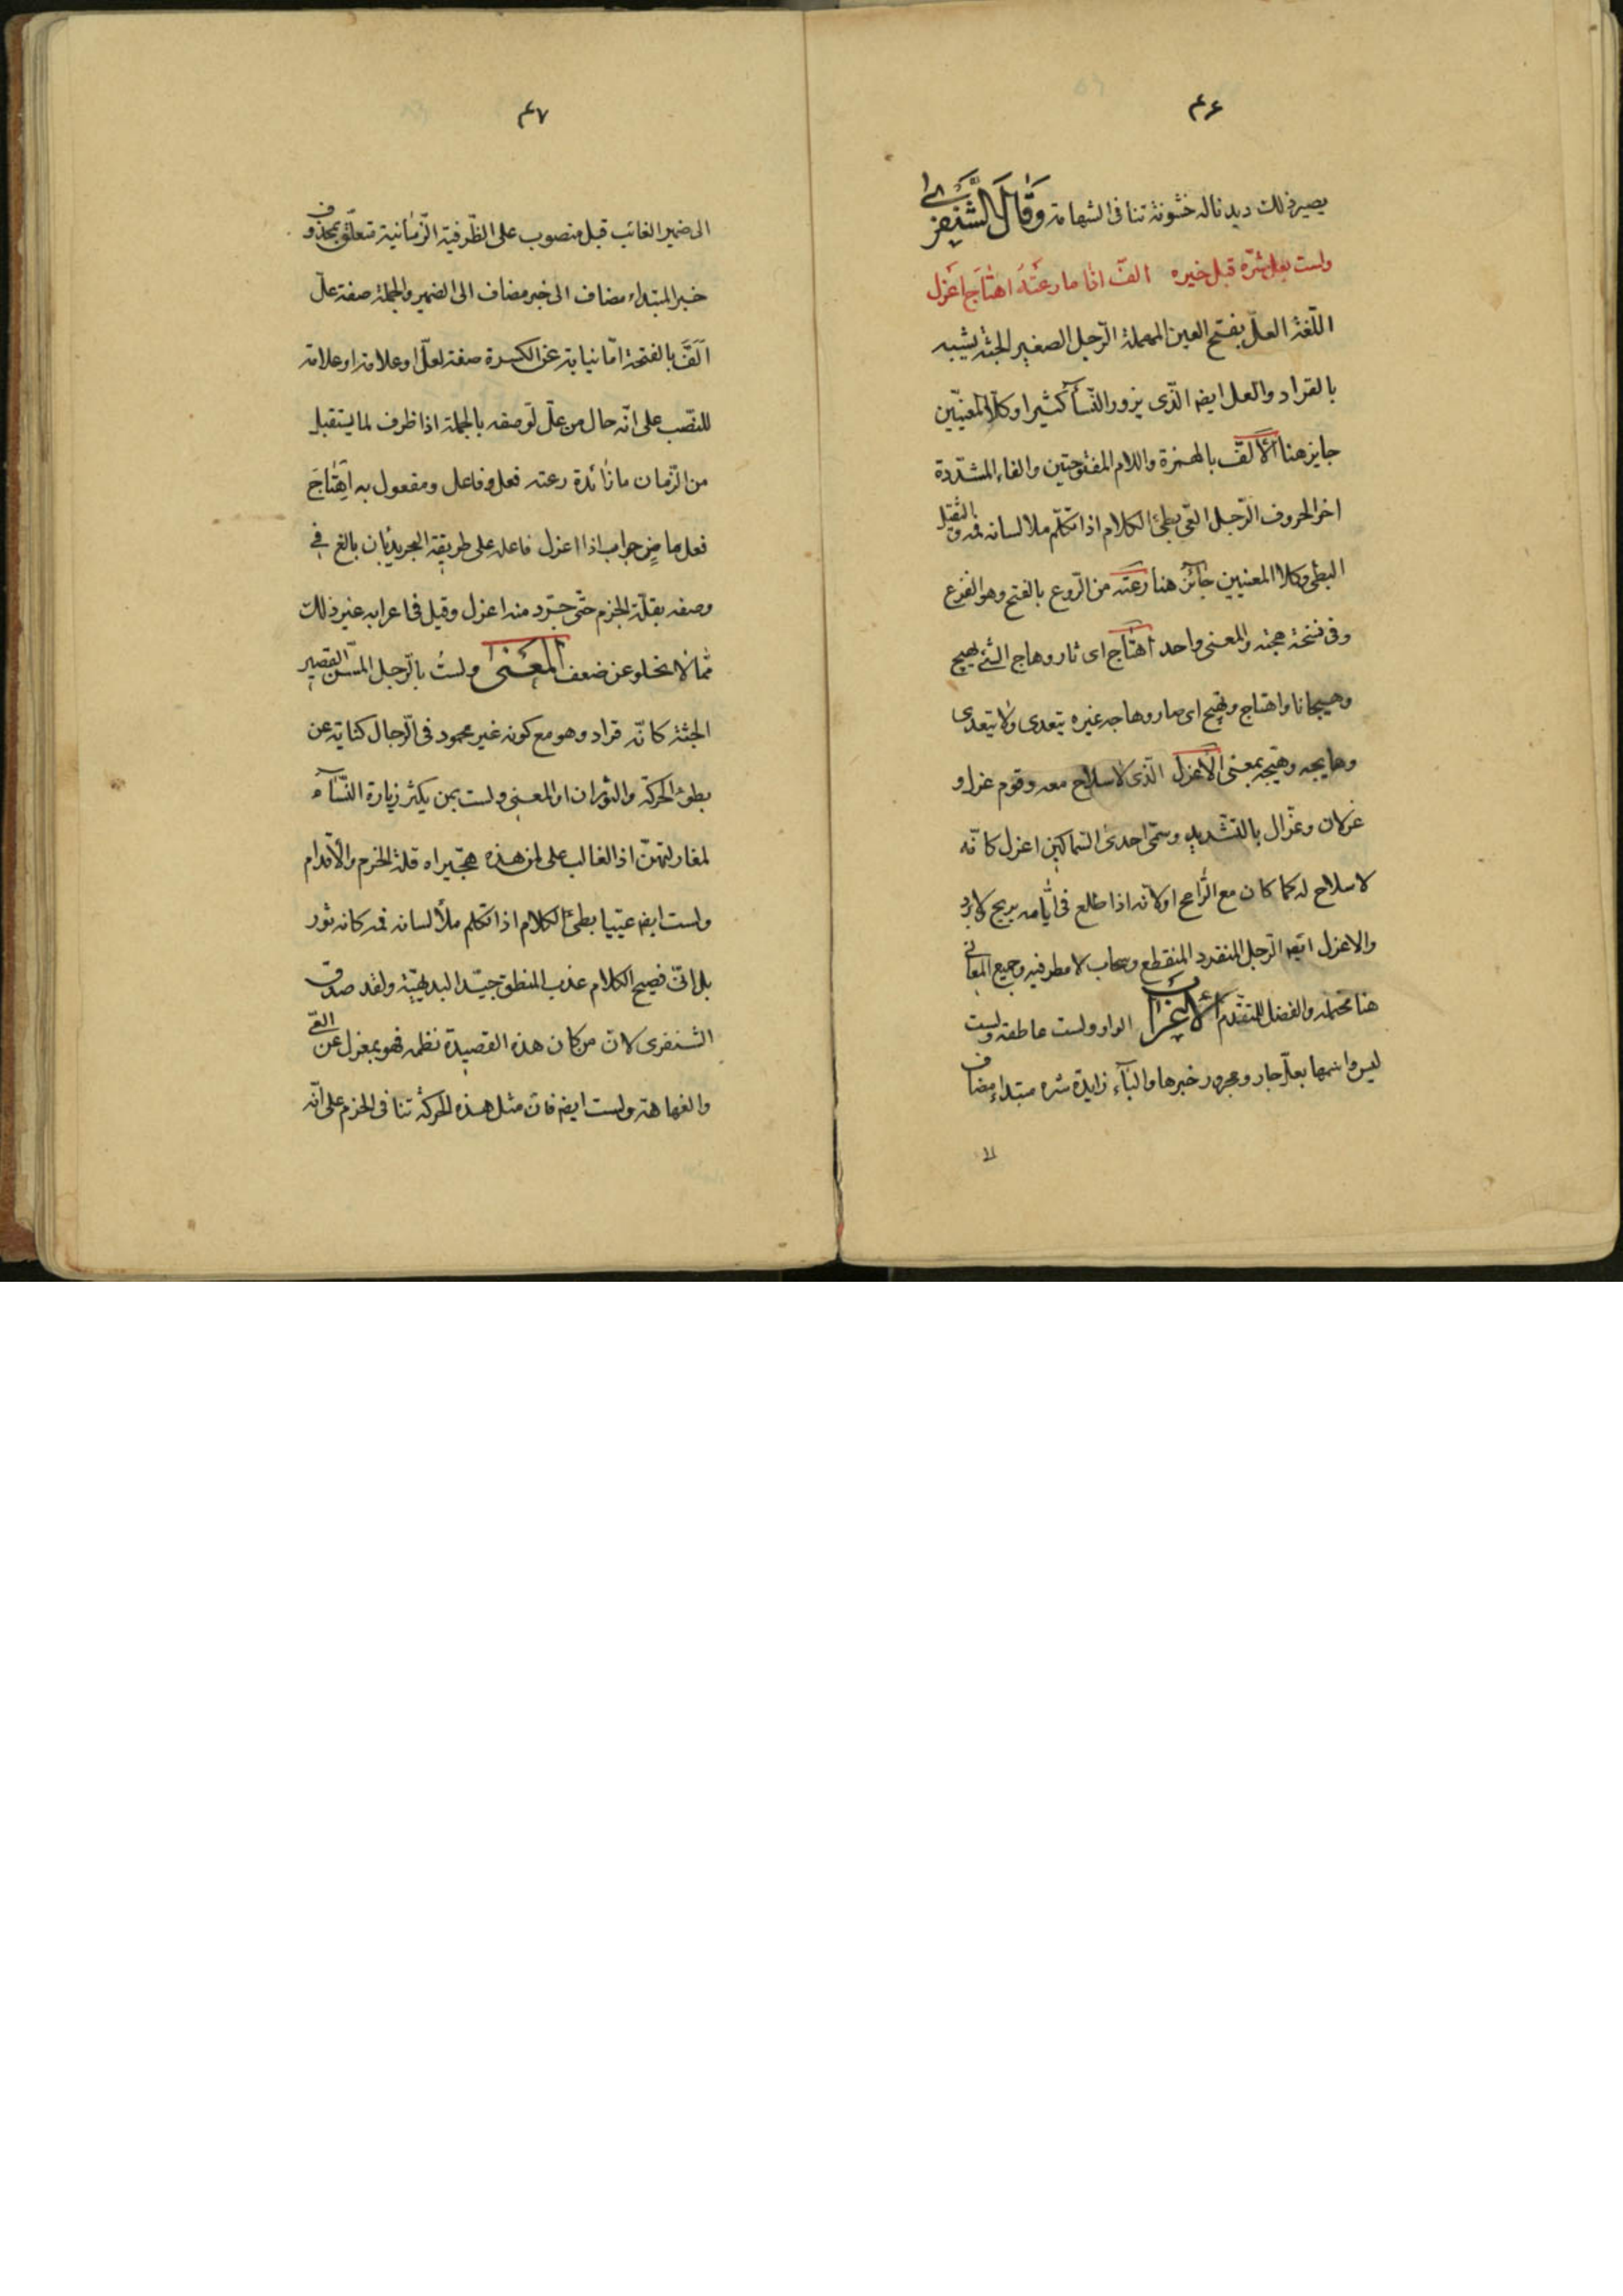 ۴۶
يصير ذلك ديدنا له خشونة تنافى الشهامة وَقَالَ الشَّنْفَرَى
ولست بعل شرّه قبل خيره الفّ اذا ما رعتَهُ اهتَاجَ اعزَل
اللّغة العلّ بفتح العين المهملة الرّجل الصغير الجثة يشبه
بالقراد والعل ايضا الّذى يزور النّسآء كثيرا وكلا المعنيين
جايز هنا الألفّ بالهمزة واللام المفتوحتين والفاء المشدّدة
اخر الحروف الرّجل العىّ بطئ الكلام اذا تكلّم ملا لسانه فمه والثقيل
البطى وكلا المعنيين جائز هنا رعته من الرّوع بالفتح وهو الفزع
وفى نسخة هجته والمعنى واحد اهتاج اى ثار وهاج الشئ يهيج
وهيجانا واهتاج وتهيج اى صار وهاجه غيره يتعدى ولا يتعدى
وهايجه وهيّجه بمعنى الأعزل الّذى لا سلاح معه وقوم عزل و
عزلان وعزّال بالتشديد وسمّى احدى السّماكين اعزل كانّه
لا سلاح له كما كان مع الرّامح اولانّه اذا طلع فى ايّامه بريح لا برد
والاعزل ايضا الرّجل المنفرد المنقطع وسحاب لا مطر فيه وجميع المعانى
هنا محتمله والفضل للمتقدم الأعراب الواو ولست عاطفة وليست
ليس واسمها بعل جار ومجرور خبرها والبآء زايدة شره مبتداء مضاف
الا
۴۷
الى ضمير الغائب قبل منصوب على الظّرفية الزّمانية متعلّق بمحذوف
خبر المبتداء مضاف الى خبر مضاف الى الضمير والجملة صفة علّ
اَلَفَّ بالفتحة امّا نيابة عن الكسرة صفة لعلّ او علامة او علامة
للنصّب على انّه حال من علّ لوصفه بالجملة اذا ظرف لما يستقبل
من الزّمان ما زائدة رعته فعل وفاعل ومفعول به اِهْتَاجَ
فعل ماضٍ جواب اذا اعزل فاعله على طريقة التجريد بان بالغ فى
وصفه بقلّة الحزم حتّى جرّد منه اعزل وقيل فى اعرابه غير ذلك
ممّا لا يخلو عن ضعف المعنى ولستُ بالرّجل المسّن القصير
الجثة كانّه قراد وهو مع كونه غير محمود فى الرّجال كناية عن
بطؤ الحركة والثوران او المعنى ولست بمن يكثر زيارة النّسآء
لمغازلتهنّ اذ الغالب على من هذه هجّيراه قلة الحزم والاقدام
ولست ايضا عييّا بطئ الكلام اذا تكلم ملأ لسانه فمه كانه ثور
بل انّى فصيح الكلام عذب المنطق جيّد البديهيّة ولقد صدق
الشنفرى لانّ من كان هذه القصيدة نظمه فهو بمعزل عن العىّ
والفهاهة ولست ايضا فان مثل هذه الحركة تنافى الحزم على انّه